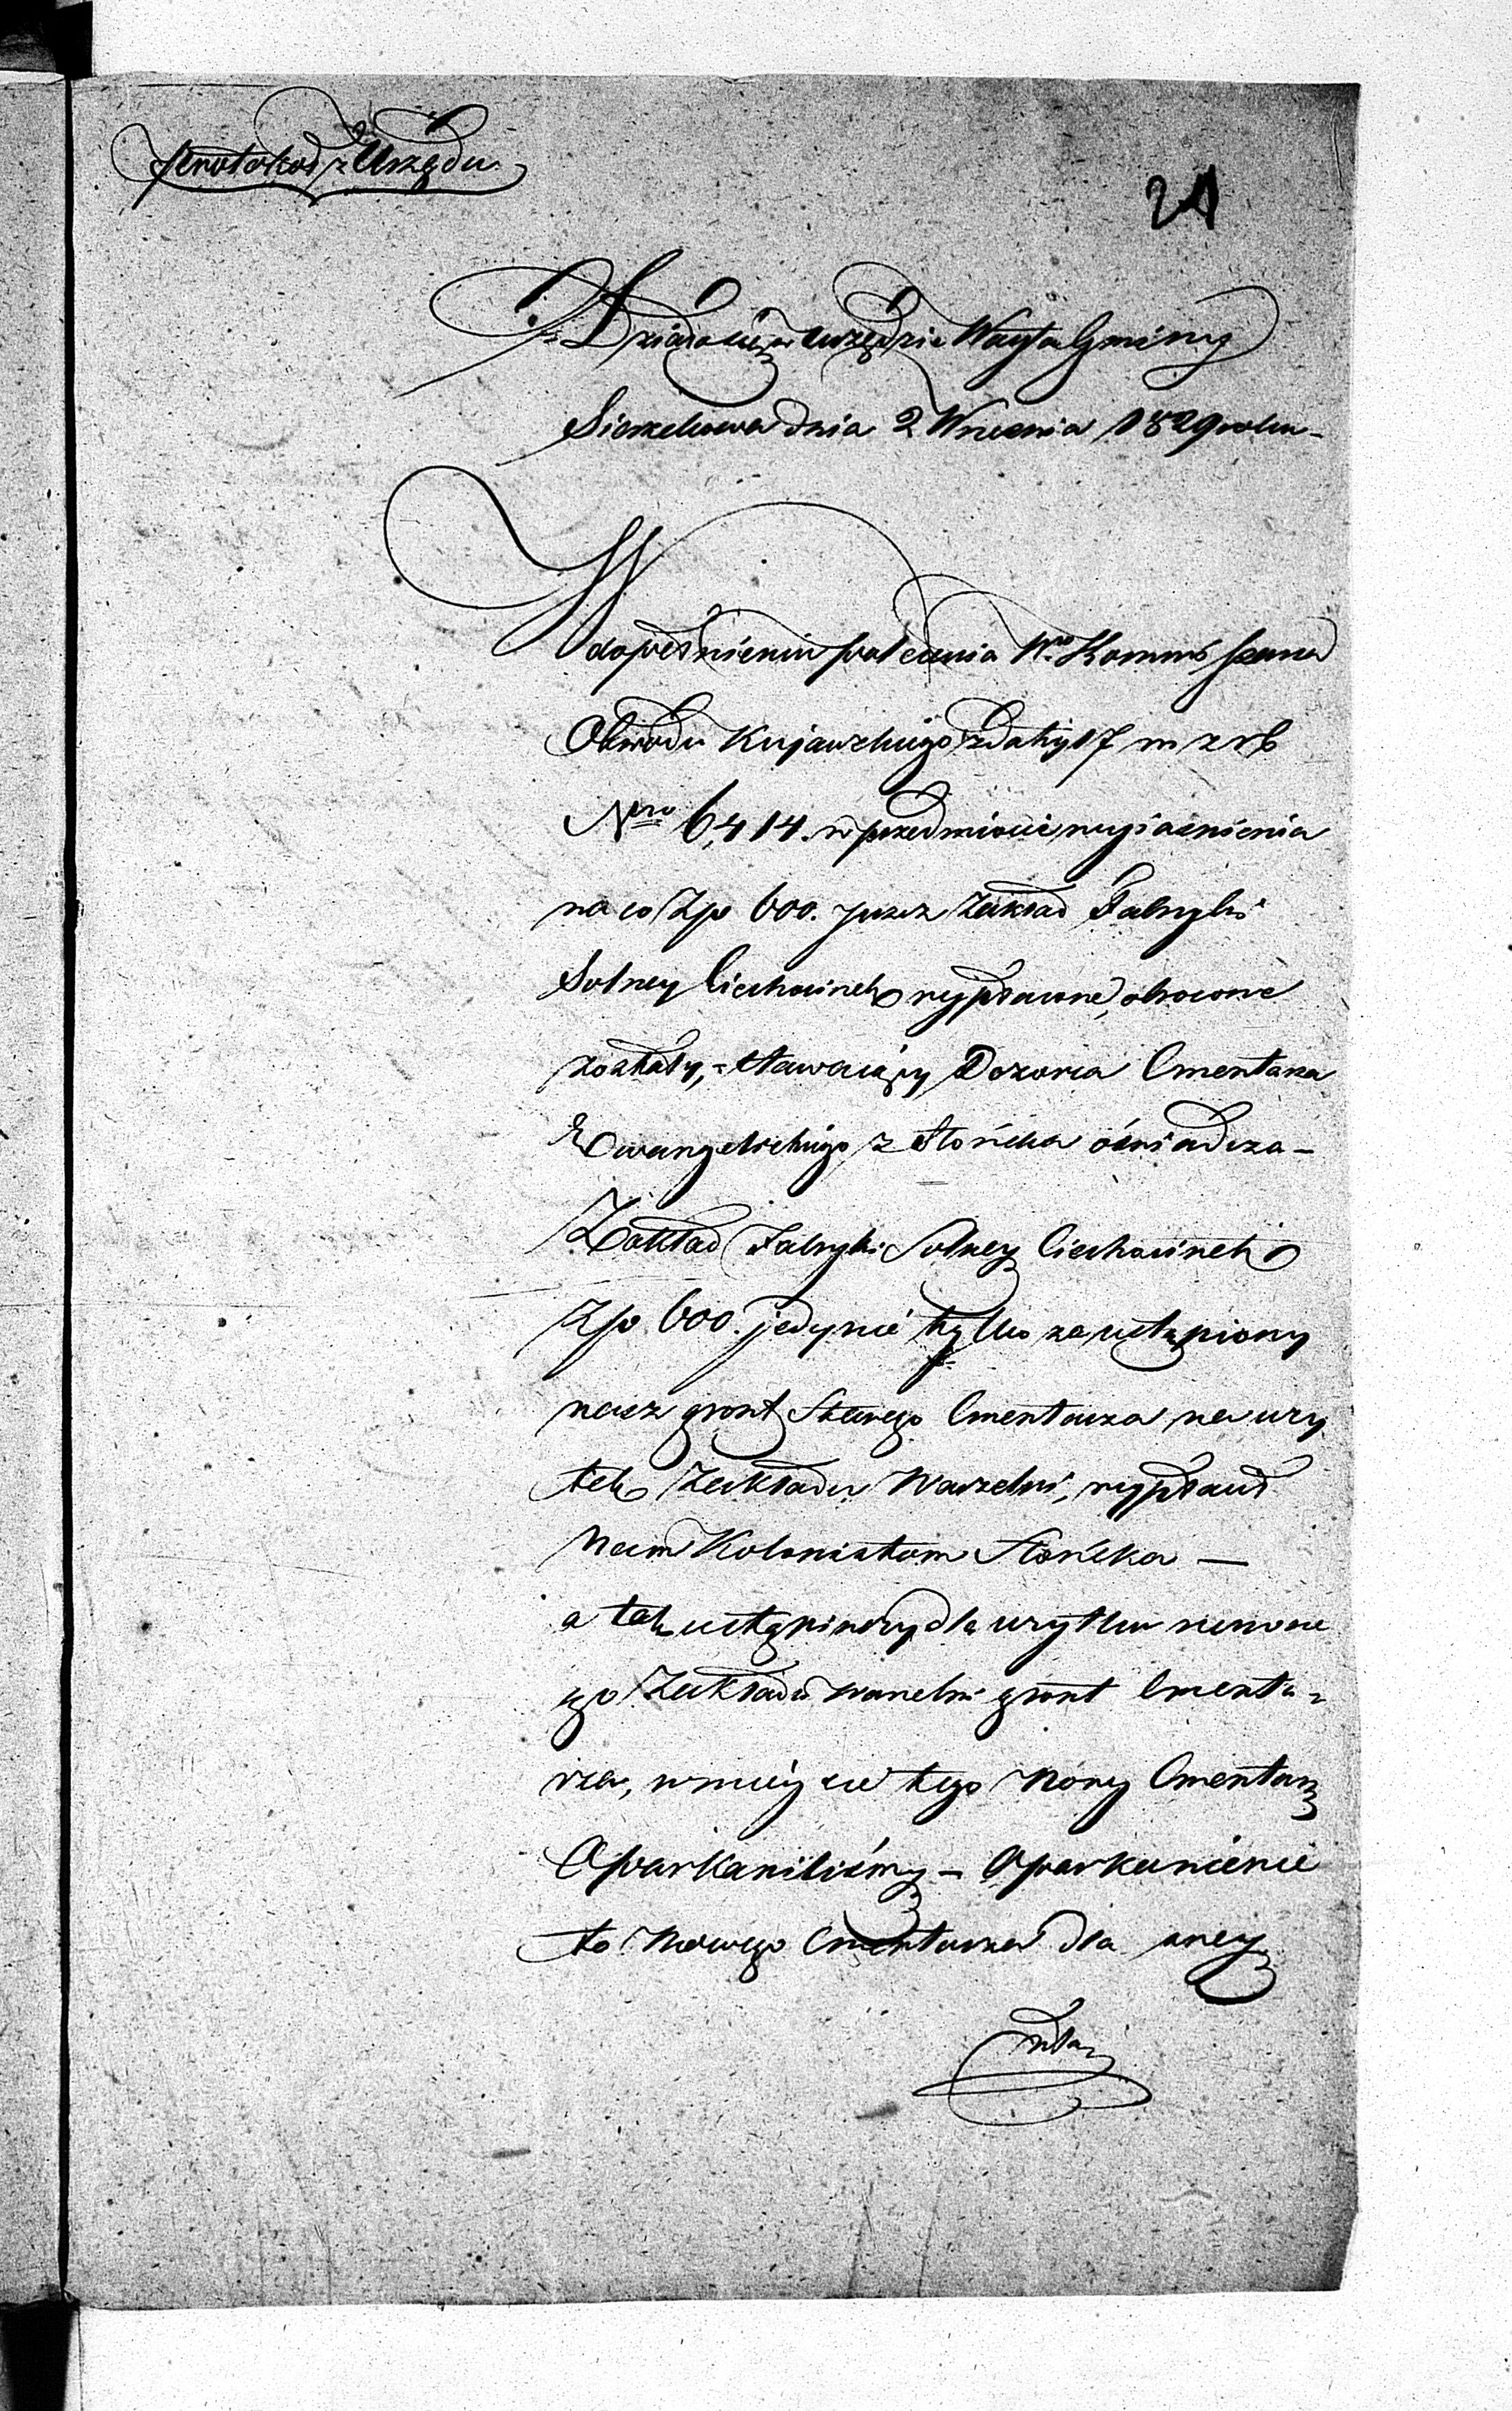 Protokoł z Urzędu
21
Działo się w urzędzie Woyta Gminy
Siarzewa dnia 2 Wrzesnia 1829 roku -
W dopełnieniu polecenia Wgo Kommissarza
Obwodu Kujawskiego z daty 17 m z r b
Nro 6,414. w przedmiocie wyjasnienia
na co Zp 600. przez Zakład Fabryki
Solney Ciechocinek wypłacone, obrocone
zostały, - stawaiący Dozorca Cmentarza
Ewangelickiego z Słońska oświadcza -
Zakład Fabryki Solney Ciechocinek
Zp 600. jedynie tylko za ustąpiony
nasz gront Starego Cmentarza na uzy
tek Zakładu Warzelni, wypłacił
Nam Kolonistom Słońska —
a tak ustąpiwszy dla uzytku
go Zakładu warzelni gront Cmenta-
rza, w mieysce tego Nowy Cmentarz
Oparkaniliśmy - Oparkanienie
to Nowego Cmentarza dla